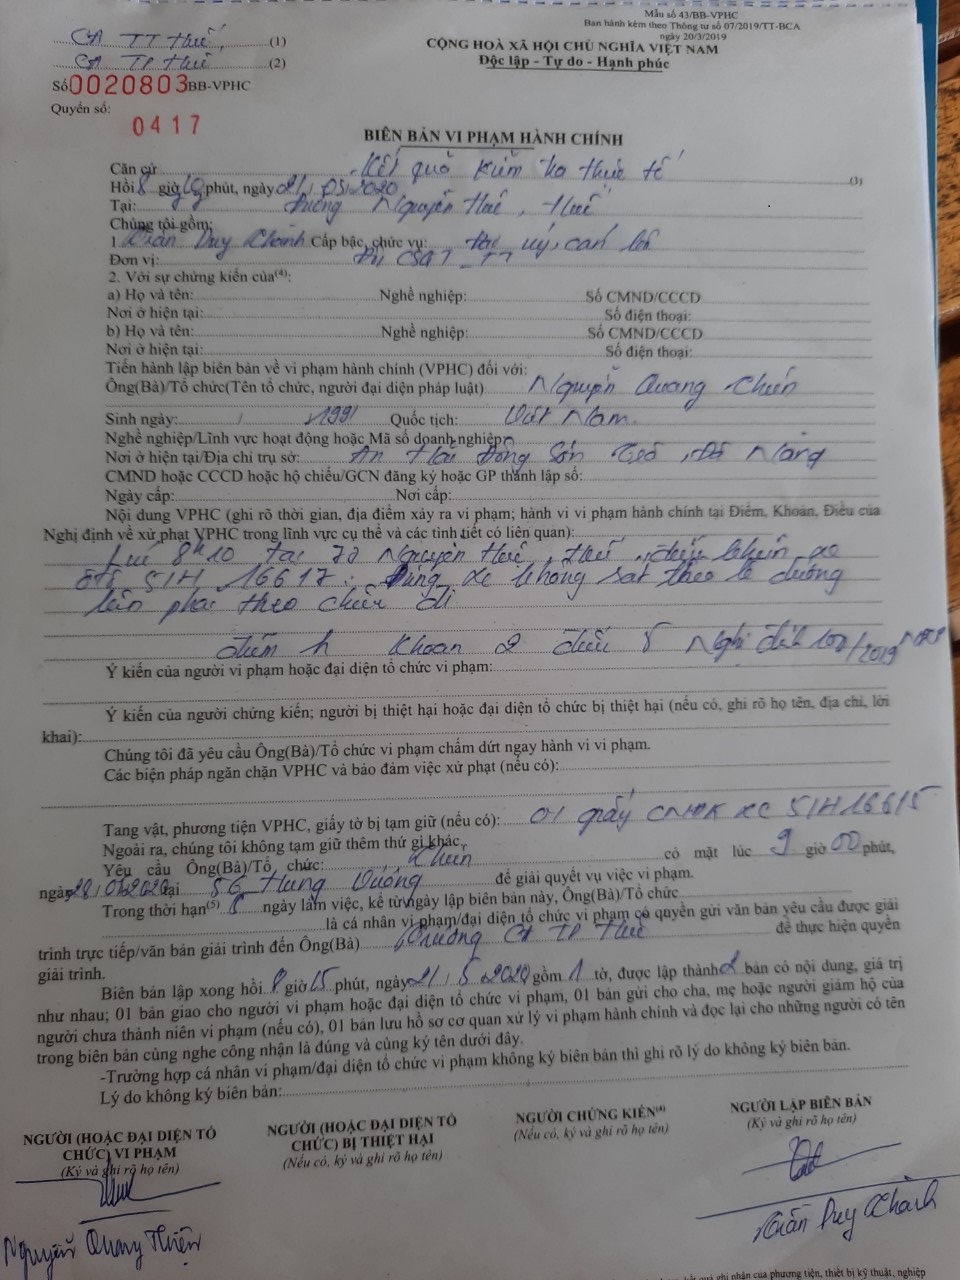 Mẫu số 43/BB-VPHC
Ban hành kèm theo Thông tư số 07/2019/TT-BCA
ngày 20/3/2019
CA TT Huế, (1)
CA TP Huế (2)
CỘNG HOÀ XÃ HỘI CHỦ NGHĨA VIỆT NAM
Độc lập - Tự do - Hạnh phúc
Số 0020803 BB-VPHC
Quyển số:
0417
BIÊN BẢN VI PHẠM HÀNH CHÍNH
Căn cứ Kết quả kiểm tra thực tế (3)
Hồi 8 giờ 10 phút, ngày 21/05/2020
Tại: Đường Nguyễn Huệ, Huế
Chúng tôi gồm:
1. Trần Duy Khánh Cấp bậc, chức vụ: úy, cán bộ
Đơn vị: Đội CSGT-TT
2. Với sự chứng kiến của(4):
a) Họ và tên: Nghề nghiệp: Số CMND/CCCD
Nơi ở hiện tại: Số điện thoại:
b) Họ và tên: Nghề nghiệp: Số CMND/CCCD
Nơi ở hiện tại: Số điện thoại:
Tiến hành lập biên bản về vi phạm hành chính (VPHC) đối với:
Ông(Bà)/Tổ chức(Tên tổ chức, người đại diện pháp luật) Nguyễn Quang
Sinh ngày: / /1991 Quốc tịch: Việt Nam
Nghề nghiệp/Lĩnh vực hoạt động hoặc Mã số doanh nghiệp
Nơi ở hiện tại/Địa chỉ trụ sở: An Hải Đông Sơn Trà, Đà Nẵng
CMND hoặc CCCD hoặc hộ chiếu/GCN đăng ký hoặc GP thành lập số:
Ngày cấp: Nơi cấp:
Nội dung VPHC (ghi rõ thời gian, địa điểm xảy ra vi phạm; hành vi vi phạm hành chính tại Điểm, Khoản, Điều của
Nghị định về xử phạt VPHC trong lĩnh vực cụ thể và các tình tiết có liên quan):
Lúc 8h10 tại Nguyễn Huệ, Huế, điều khiển xe
ôtô 51H 16617. Dừng xe không sát theo lề đường
bên phải theo chiều đi
điểm h khoản 2 điều 5 Nghị định 100/2019 NĐCP
Ý kiến của người vi phạm hoặc đại diện tổ chức vi phạm:
Ý kiến của người chứng kiến; người bị thiệt hại hoặc đại diện tổ chức bị thiệt hại (nếu có, ghi rõ họ tên, địa chỉ, lời
khai):
Chúng tôi đã yêu cầu Ông(Bà)/Tổ chức vi phạm chấm dứt ngay hành vi vi phạm.
Các biện pháp ngăn chặn VPHC và bảo đảm việc xử phạt (nếu có):
Tang vật, phương tiện VPHC, giấy tờ bị tạm giữ (nếu có): 01 giấy xe 51H16615
Ngoài ra, chúng tôi không tạm giữ thêm thứ gì khác.
Yêu cầu Ông(Bà)/Tổ chức: có mặt lúc 9 giờ 00 phút,
ngày 28/05/2020 tại 56 Hùng Vương để giải quyết vụ việc vi phạm.
Trong thời hạn(5) 5 ngày làm việc, kể từ ngày lập biên bản này, Ông(Bà)/Tổ chức
là cá nhân vi phạm/đại diện tổ chức vi phạm có quyền gửi văn bản yêu cầu được giải
trình trực tiếp/văn bản giải trình đến Ông(Bà) Trưởng CA TP Huế để thực hiện quyền
giải trình.
Biên bản lập xong hồi 8 giờ 15 phút, ngày 21/5/2020 gồm 1 tờ, được lập thành 2 bản có nội dung, giá trị
như nhau; 01 bản giao cho người vi phạm hoặc đại diện tổ chức vi phạm, 01 bản gửi cho cha, mẹ hoặc người giám hộ của
người chưa thành niên vi phạm (nếu có), 01 bản lưu hồ sơ cơ quan xử lý vi phạm hành chính và đọc lại cho những người có tên
trong biên bản cùng nghe công nhận là đúng và cùng ký tên dưới đây.
-Trường hợp cá nhân vi phạm/đại diện tổ chức vi phạm không ký biên bản thì ghi rõ lý do không ký biên bản.
Lý do không ký biên bản:
NGƯỜI (HOẶC ĐẠI DIỆN TỔ
CHỨC) VI PHẠM
(Ký và ghi rõ họ tên)
NGƯỜI (HOẶC ĐẠI DIỆN TỔ
CHỨC) BỊ THIỆT HẠI
(Nếu có, ký và ghi rõ họ tên)
NGƯỜI CHỨNG KIẾN(4)
(Nếu có, ký và ghi rõ họ tên)
NGƯỜI LẬP BIÊN BẢN
(Ký và ghi rõ họ tên)
Nguyễn Quang Thiện
Trần Duy Khánh
kết quả ghi nhận của phương tiện, thiết bị kỹ thuật, nghiệp